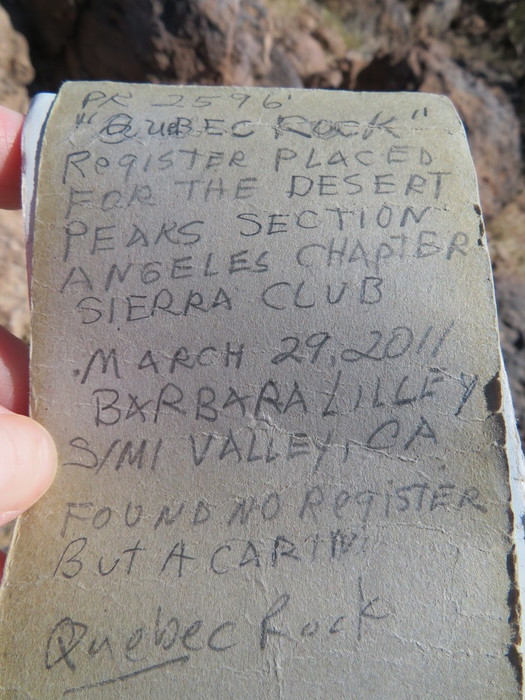 PK 2596'
"QUEBEC ROCK"
REGISTER PLACED
FOR THE DESERT
PEAKS SECTION
ANGELES CHAPTER
SIERRA CLUB
MARCH 29, 2011
BARBARA LILLEY
SIMI VALLEY, CA
FOUND NO REGISTER
BUT A CAIRN
Quebec Rock